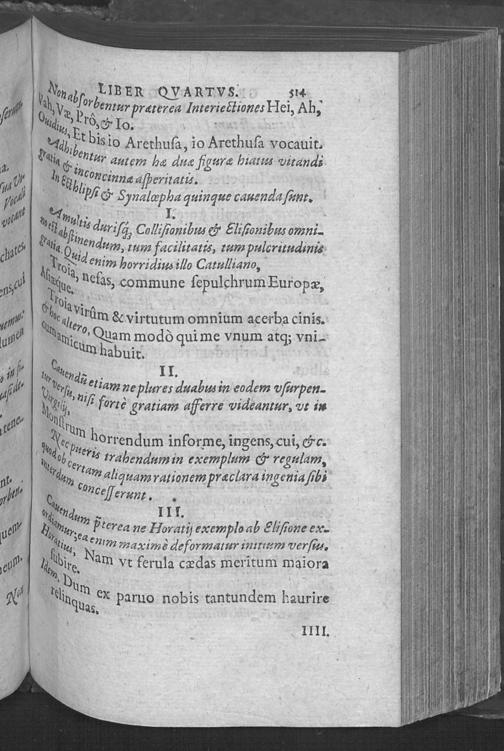 LIBER QVARTVS. 514
Non absorbentur præterea Interiectiones Hei, Ah,
Vah, Væ, Prô, & Io.
Ouidius, Et bis io Arethusa, io Arethusa vocauit.
Adhibentur autem hæ duæ figuræ hiatus vitandi
gratia & inconcinnæ asperitatis.
In Ecthlipsi & Synalœpha quinque cauenda sunt.
I.
A multis durisq́, Collisionibus & Elisionibus omni-
no est abstinendum, tum facilitatis, tum pulcritudinis
gratia. Quid enim horridius illo Catulliano,
Troia, nefas, commune sepulchrum Europæ,
Asiaque.
Troia virûm & virtutum omnium acerba cinis.
& hoc altero, Quam modò qui me vnum atq; vni-
cum amicum habuit.
II.
Cauendū etiam ne plures duabus in eodem vsurpen-
tur versu, nisi fortè gratiam afferre videantur, vt in
Virgilij,
Monstrum horrendum informe, ingens, cui, &c.
Nec pueris trahendum in exemplum & regulam,
quod ob certam aliquam rationem præclara ingenia sibi
interdum concesserunt.
III.
Cauendum p̄terea ne Horatij exemplo ab Elisione ex-
ordiamur, ea enim maximè deformatur initium versus.
Horatius, Nam vt ferula cædas meritum maiora
subire.
Idem, Dum ex paruo nobis tantundem haurire
relinquas.
IIII.